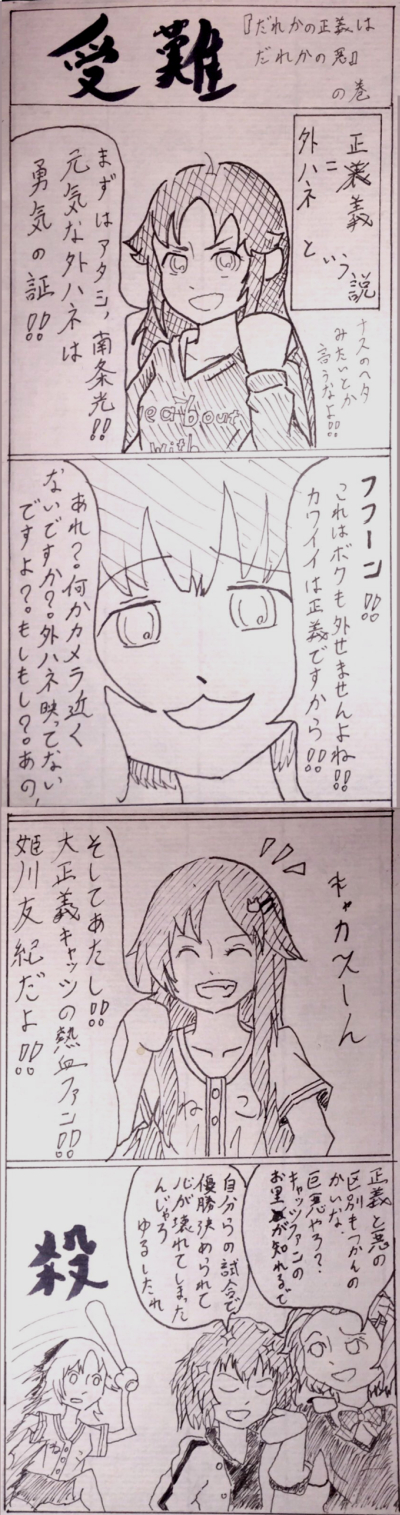 受難
『だれかの正義は
だれかの悪』
の巻
正義
=
外ハネ
という
説
ナスのヘタ
みたいとか
言うなよ!!
まずはアタシ、南条光!!
元気な外ハネは
勇気の証!!
ear bout
with
フフーン!!
これはボクも外せませんよね!!
カワイイは正義ですから!!
あれ?何かカメラ近く
ないですか?外ハネ映ってない
ですよ?もしもし?あの、
キャカヘーん
そしてあたし!!
大正義キャッツの熱血ファン!!
姫川友紀だよ!!
ねこ
正義と悪の
区別もつかんの
かいな。
巨悪やろ?
キャッツファンの
お里が知れるで
自分らの試合で
優勝決められて
心が壊れてしまった
んじゃろ
ゆるしたれ
殺
ね